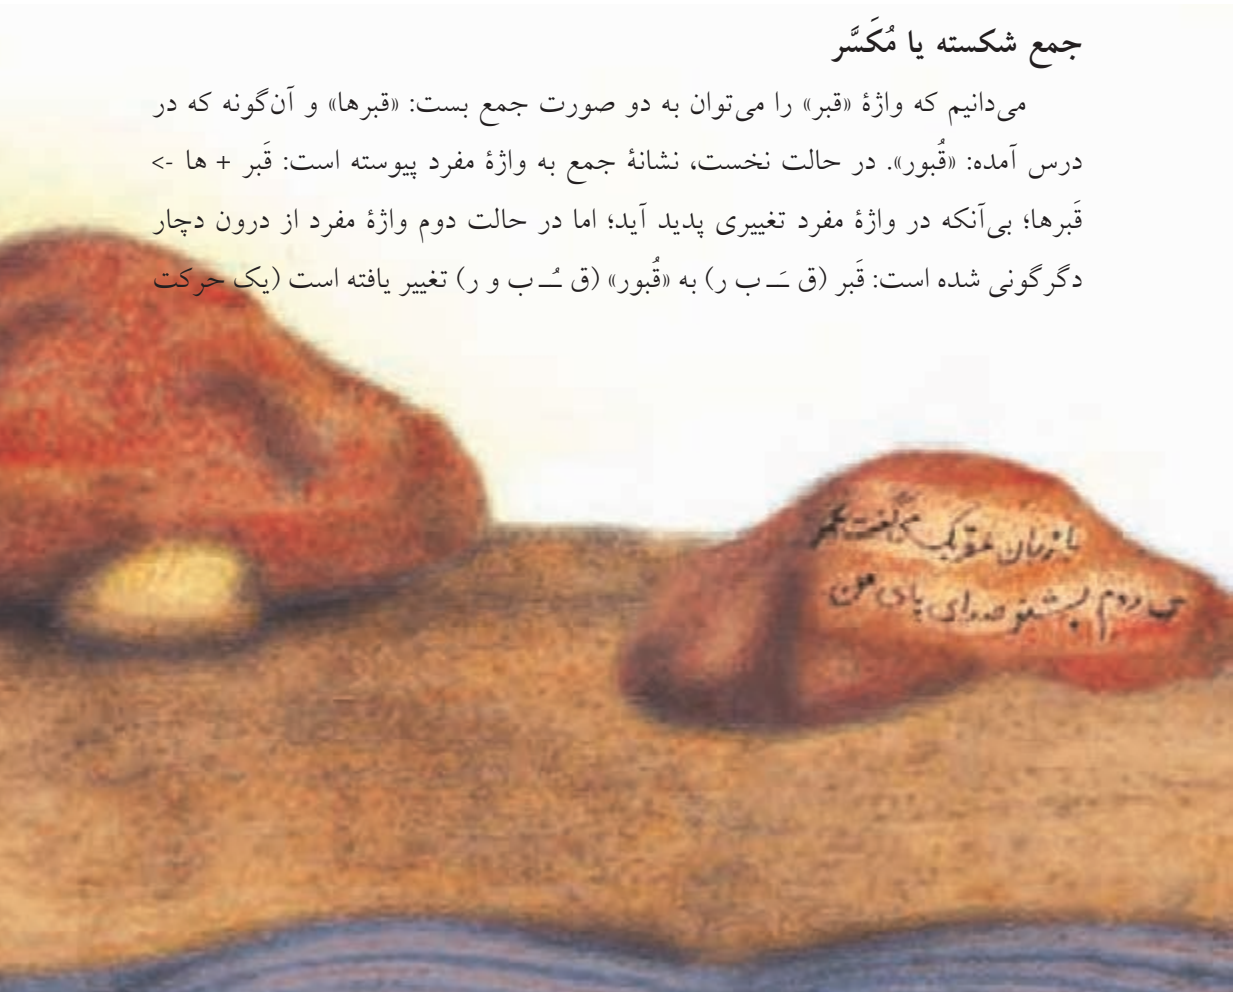 جمع شکسته یا مُکَسَّر
می‌دانیم که واژهٔ «قبر» را می‌توان به دو صورت جمع بست: «قبرها» و آن‌گونه که در
درس آمده: «قُبور». در حالت نخست، نشانهٔ جمع به واژهٔ مفرد پیوسته است: قَبر + ها ->
قَبرها؛ بی‌آنکه در واژهٔ مفرد تغییری پدید آید؛ اما در حالت دوم واژهٔ مفرد از درون دچار
دگرگونی شده است: قَبر (ق ـَـ ب ر) به «قُبور» (ق ـُـ ب و ر) تغییر یافته است (یک حرکت
با زبان می‌گفت عمر
می‌روم بشنو صدای پای من